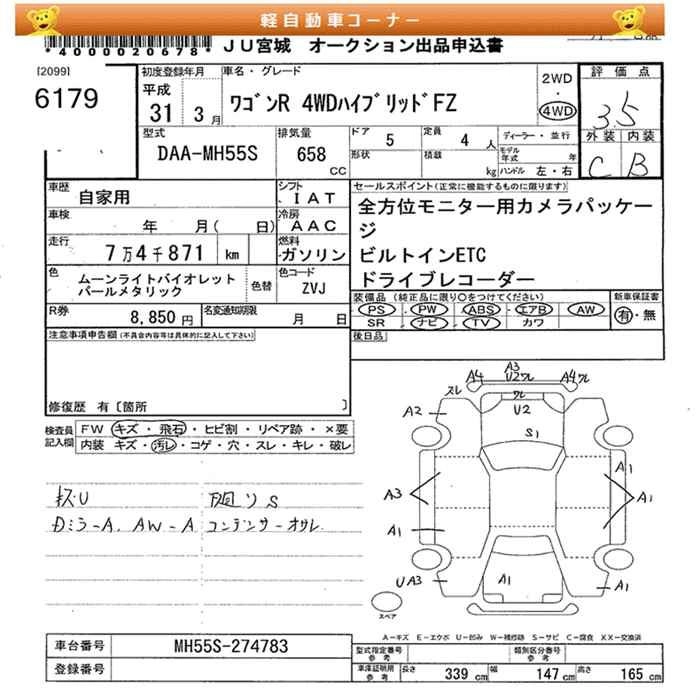 軽自動車コーナー
*4000020678* JU宮城 オークション出品申込書
[2099]
6179
初度登録年月
平成
31 3月
車名・グレード
ワゴンR 4WDハイブリッドFZ
2WD
・
4WD
評価点
3.5
外装 内装
C B
型式
DAA-MH55S
排気量
658
CC
ドア 5
定員 4 人
形状
積載 kg
ディーラー・並行
モデル年式 年
ハンドル 左・右
車歴 自家用
シフト IAT
車検 年 月( 日)
冷房 AAC
走行 7万4千871 km
燃料 ガソリン
色 ムーンライトバイオレット
パールメタリック
色替
色コード ZVJ
R券 8,850円
名変通知期限 月 日
セールスポイント(正常に機能するものに限ります)
全方位モニター用カメラパッケー
ジ
ビルトインETC
ドライブレコーダー
装備品(純正品に限り○をつけてください)
PS PW ABS エアB AW
SR ナビ TV カワ
新車保証書
有・無
後日品
注意事項申告欄(不具合内容等は具体的に記入して下さい)
修復歴 有〔箇所 〕
検査員記入欄
FW キズ・飛石・ヒビ割・リペア跡・×要
内装 キズ・汚レ・コゲ・穴・スレ・キレ・破レ
キズU
Dミラ-A. AW-A
下廻りS
コンデンサーオサレ
A3
A4 U2ワレ A4ワレ
スレ ワレ
A2 U2
S1
A1
A3 A1
A1
UA3 A1 A1
スペア
A-キズ E-エクボ U-凹み W-補修跡 S-サビ C-腐食 XX-交換済
車台番号 MH55S-274783
登録番号
型式指定番号
参考
類別区分番号
参考
車庫証明用
参考
長さ 339 cm 幅 147 cm 高さ 165 cm